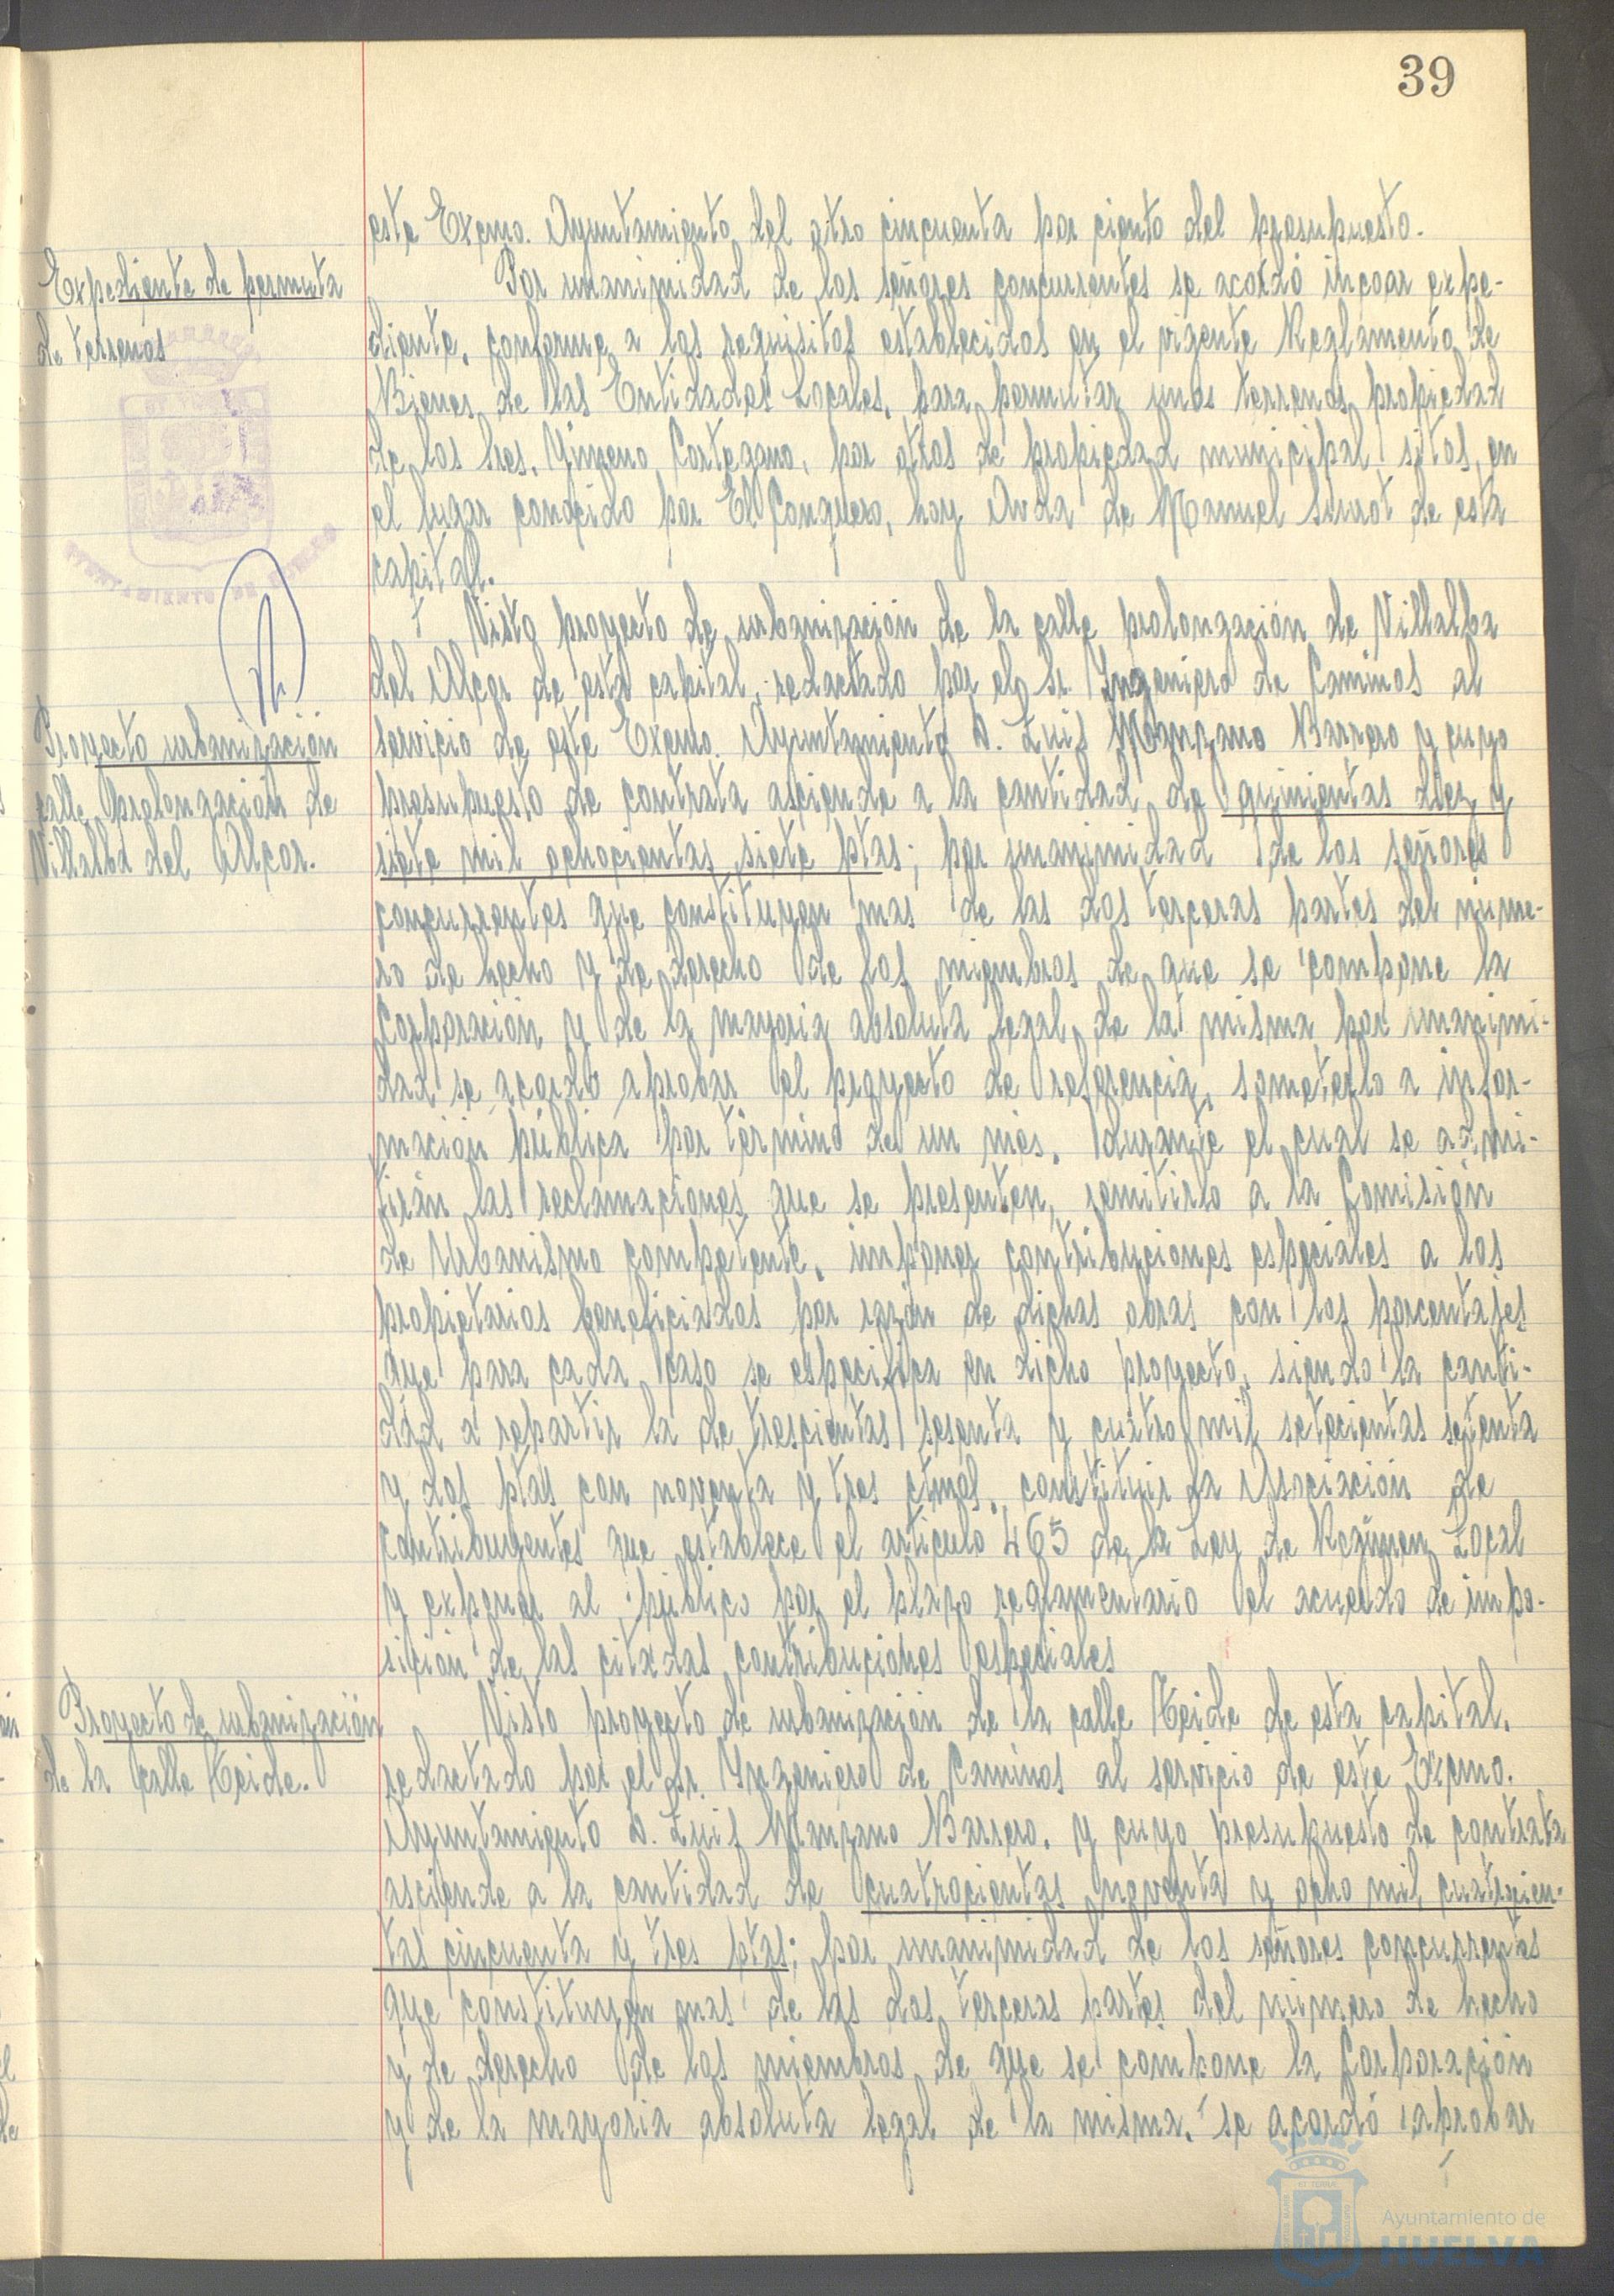 39
este Excmo. Ayuntamiento del otro cincuenta por ciento del presupuesto.
Expediente de permuta
de terrenos
Por unanimidad de los señores concurrentes se acordó incoar expe-
diente, conforme a los requisitos establecidos en el vigente Reglamento de
Bienes de las Entidades Locales, para permutar unos terrenos propiedad
de los Sres. Jimeno Cortegano, por otros de propiedad municipal, sitos en
el lugar conocido por El Conquero, hoy Avda de Manuel Siurot de esta
capital.
Proyecto urbanización
calle prolongación de
Villalba del Alcor.
Visto proyecto de urbanización de la calle prolongación de Villalba
del Alcor de esta capital, redactado por el Sr. Ingeniero de Caminos al
servicio de este Excmo. Ayuntamiento D. Luis Manzano Barrero y cuyo
presupuesto de contrata asciende a la cantidad de quinientas diez y
siete mil ochocientas siete ptas; por unanimidad de los señores
concurrentes que constituyen mas de las dos terceras partes del núme-
ro de hecho y de derecho de los miembros de que se compone la
Corporación y de la mayoria absoluta legal de la misma por unanimi-
dad se acordó aprobar el proyecto de referencia, someterlo a infor-
mación pública por término de un mes, durante el cual se admi-
tirán las reclamaciones que se presenten, remitirlo a la Comisión
de Urbanismo competente, imponer contribuciones especiales a los
propietarios beneficiados por razón de dichas obras con los porcentajes
que para cada caso se especifica en dicho proyecto, siendo la canti-
dad a repartir la de trescientas sesenta y cuatro mil setecientas setenta
y dos ptas con noventa y tres ctmos, constituir la Asociación de
Contribuyentes que establece el articulo 465 de la Ley de Regimen Local
y exponer al público por el plazo reglamentario el acuerdo de impo-
sición de las citadas contribuciones especiales
Proyecto de urbanización
de la calle Teide.
Visto proyecto de urbanización de la calle Teide de esta capital,
redactado por el Sr. Ingeniero de Caminos al servicio de este Excmo.
Ayuntamiento D. Luis Manzano Barrero, y cuyo presupuesto de contrata
asciende a la cantidad de cuatrocientas noventa y ocho mil cuatrocien-
tas cincuenta y tres ptas; por unanimidad de los señores concurrentes
que constituyen mas de las dos terceras partes del número de hecho
y de derecho de los miembros de que se compone la Corporación
y de la mayoria absoluta legal de la misma, se acordó aprobar
Ayuntamiento de
HUELVA